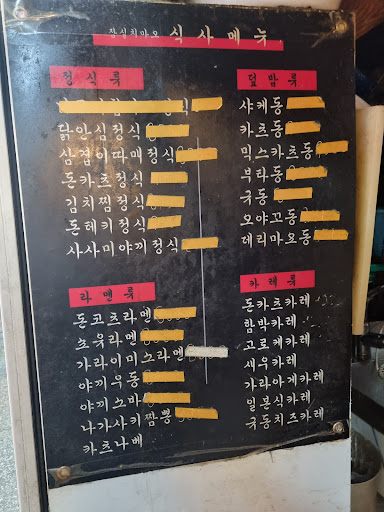 식사메뉴
정식류
정식
닭안심정식
삼겹이따매정식
돈카츠정식
김치찜정식
돈테키정식
사사미야끼정식
덮밥류
사케동
카츠동
믹스카츠동
부타동
규동
오야꼬동
데리마요동
라멘류
돈코츠라멘
쇼유라멘
가라이미소라멘
야끼우동
야끼소바
나가사키짬뽕
카츠나베
카레류
돈카츠카레
함박카레
고로케카레
새우카레
가라아게카레
일본식카레
규동치즈카레